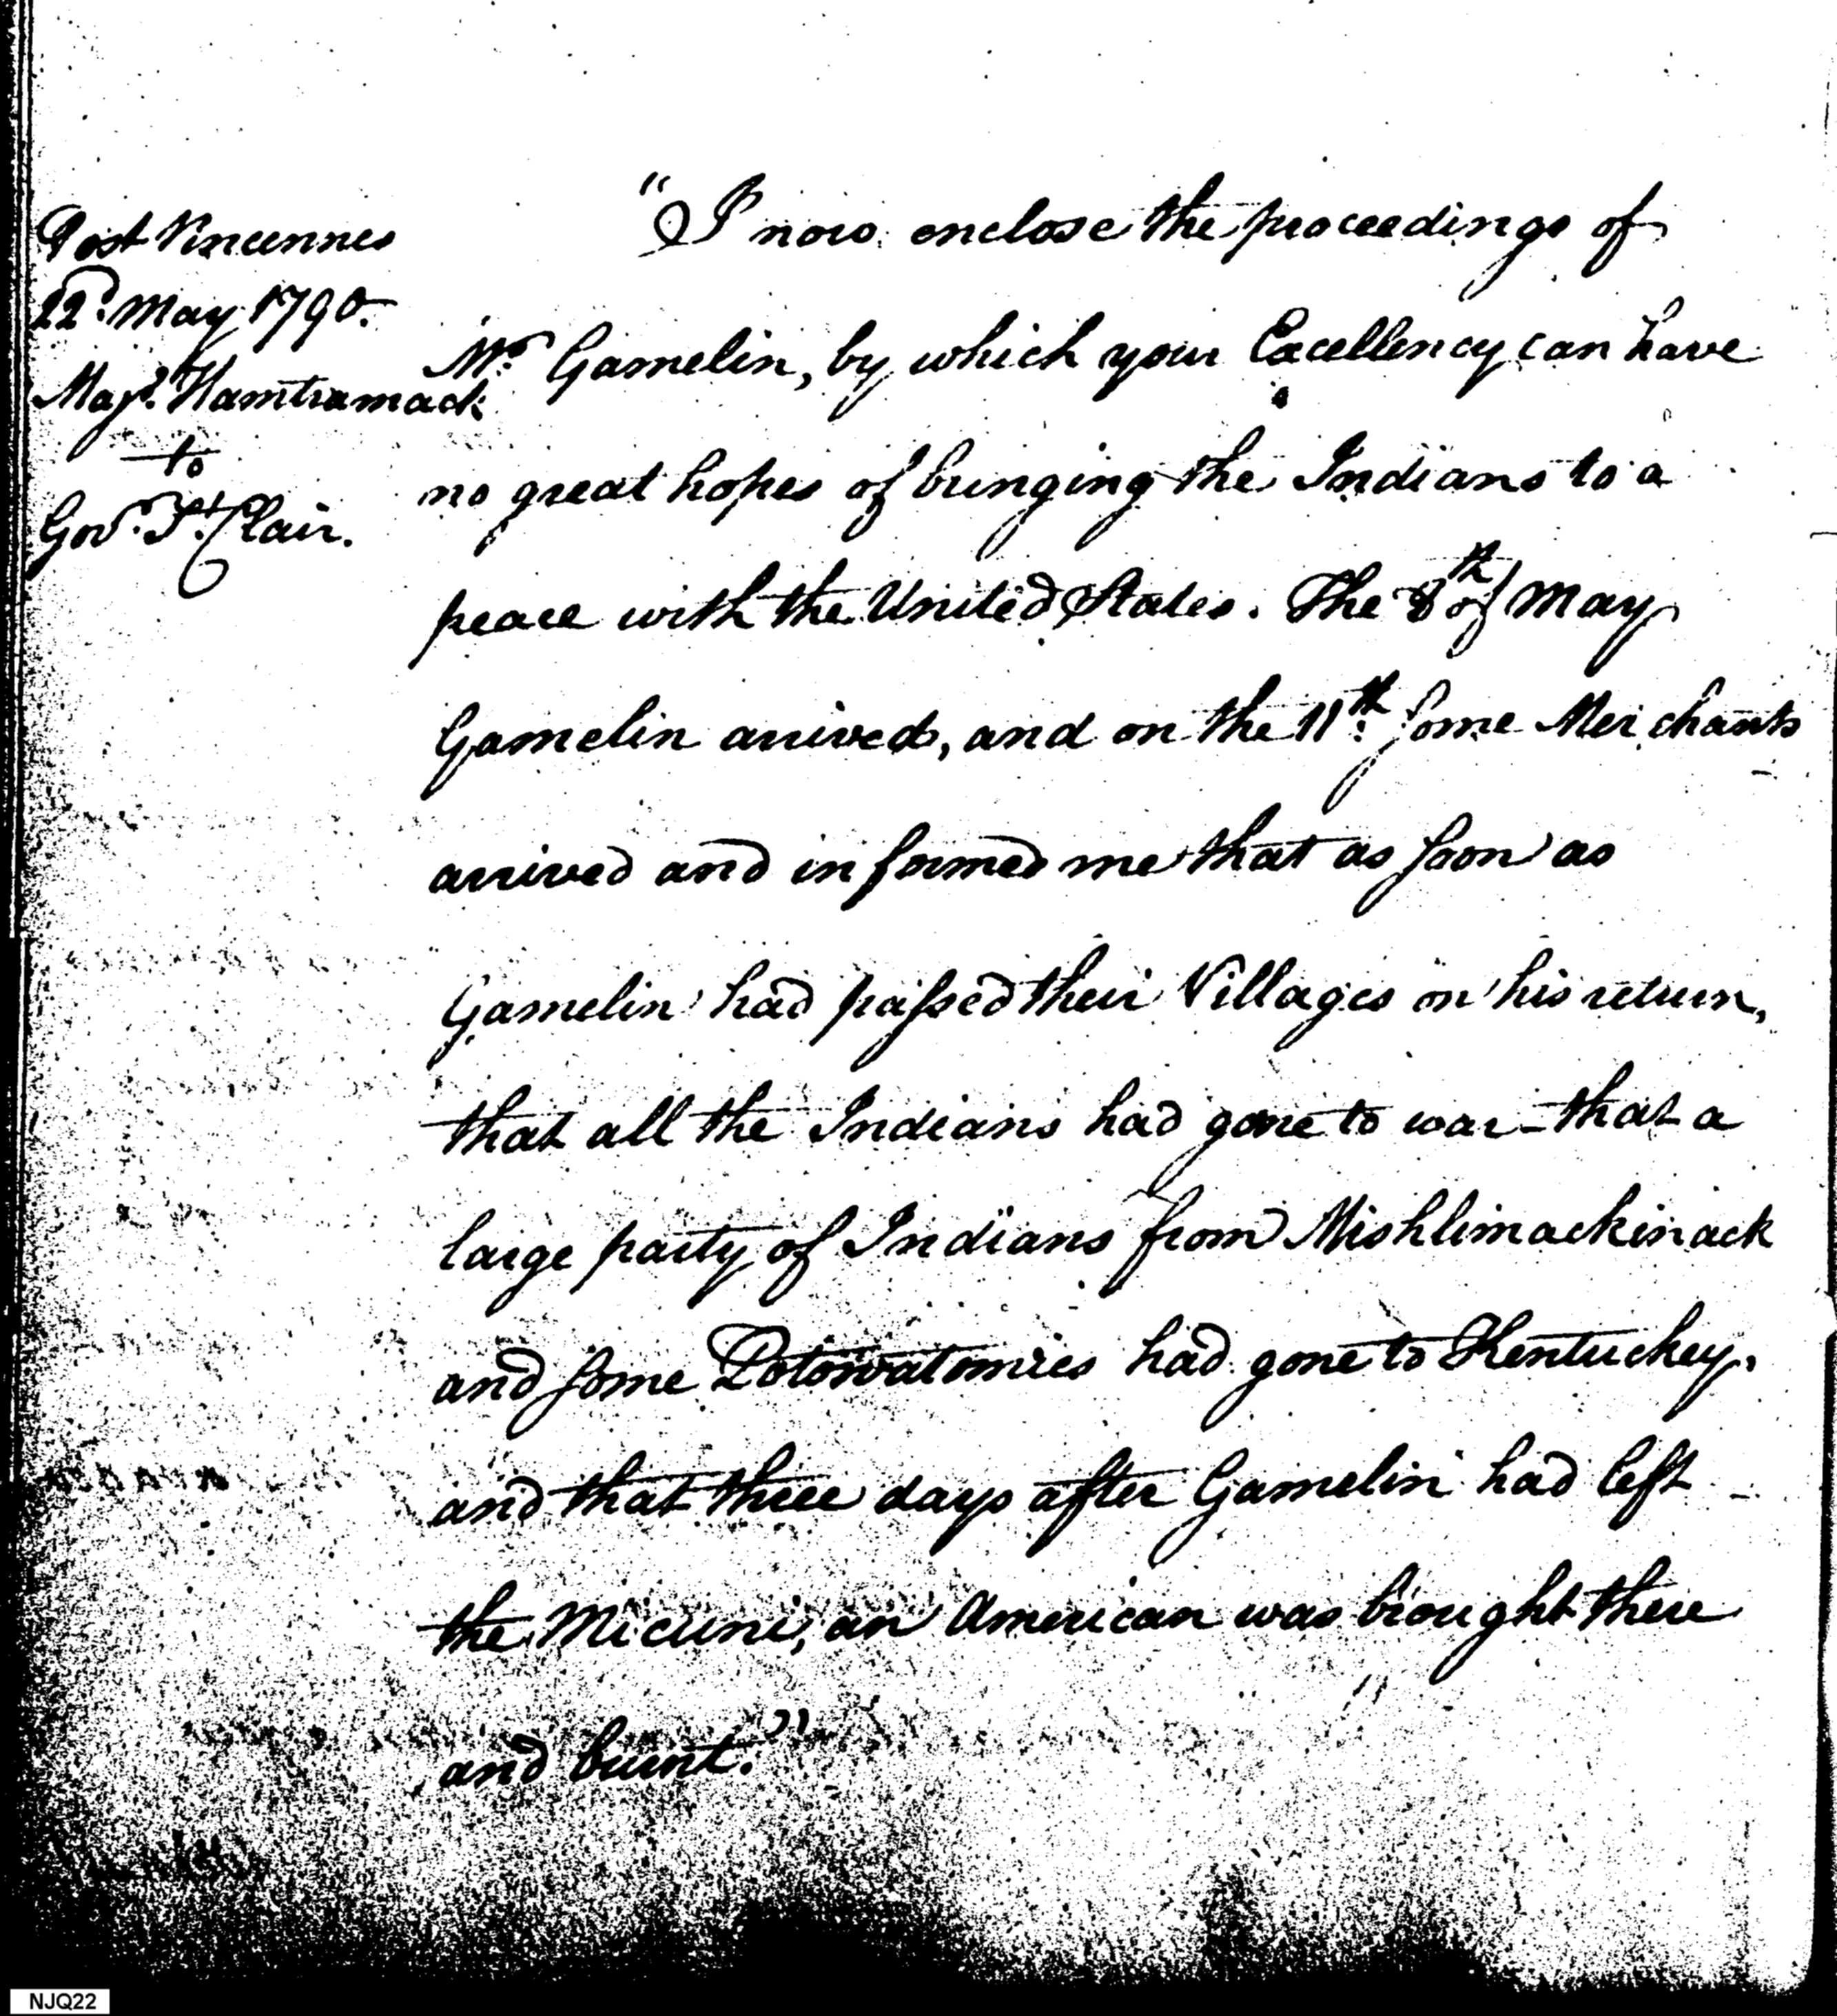 Post Vincennes
22d. May 1790.
Majr. Hamtramack
to
Govr. St. Clair.
"I now enclose the proceedings of
Mr. Gamelin, by which your Excellency can have
no great hopes of bringing the Indians to a
peace with the United States. The 8th of May
Gamelin arrived, and on the 11th. some Merchants
arrived and informed me that as soon as
Gamelin had passed their Villages on his return,
that all the Indians had gone to war - that a
large party of Indians from Mishlimackinack
and some Potowatomies had gone to Kentuckey.
and that three days after Gamelin had left
the Micuni, an American was brought there
and burnt."
NJQ22